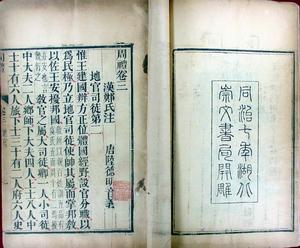 同治七年湖北
崇文書局開雕
周禮卷三
地官司徒第二
漢鄭氏注
唐陸德明音義
惟王建國辨方正位體國經野設官分職以
爲民極乃立地官司徒使帥其屬而掌邦教
以佐王安擾邦國
教官之屬大司徒卿一人小司徒
中大夫二人鄉師下大夫四人上士八人中
士十有六人旅下士三十有二人府六人史